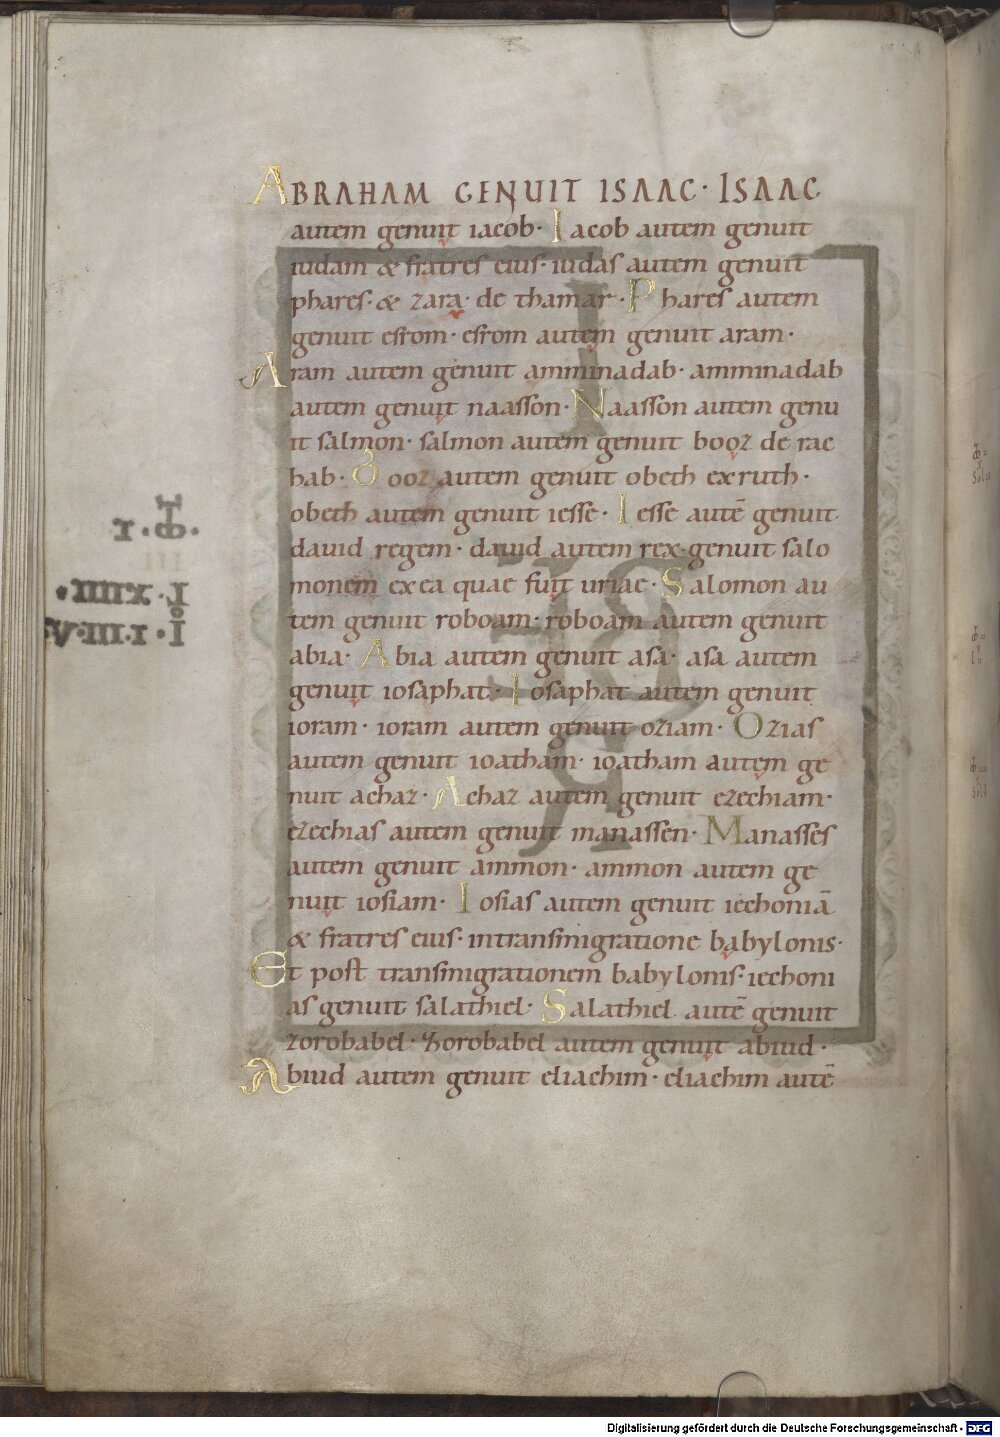 ABRAHAM GENUIT ISAAC· ISAAC
autem genuit iacob· Iacob autem genuit
iudam & fratres eius· iudas autem genuit
phares· & zara· de thamar· Phares autem
genuit esrom· esrom autem genuit aram·
Aram autem genuit amminadab· amminadab
autem genuit naasson· Naasson autem genu
it salmon· salmon autem genuit booz de rac
hab· Booz autem genuit obeth exruth·
obeth autem genuit iesse· Iesse autē genuit
dauid regem· dauid autem rex· genuit salo
monem ex ea quae fuit uriae· Salomon au
tem genuit roboam· roboam autem genuit
abia· Abia autem genuit asa· asa autem
genuit iosaphat· Iosaphat autem genuit
ioram· ioram autem genuit oziam· Ozias
autem genuit ioatham· ioatham autem ge
nuit achaz· Achaz autem genuit ezechiam·
ezechias autem genuit manassen· Manasses
autem genuit ammon· ammon autem ge
nuit iosiam· Iosias autem genuit iechoniā
& fratres eius· intransmigratione babylonis·
Et post transmigrationem babylonis· iechoni
as genuit salathiel· Salathiel autē genuit
zorobabel· Zorobabel autem genuit abiud·
Abiud autem genuit eliachim· eliachim autē
Digitalisierung gefördert durch die Deutsche Forschungsgemeinschaft - DFG